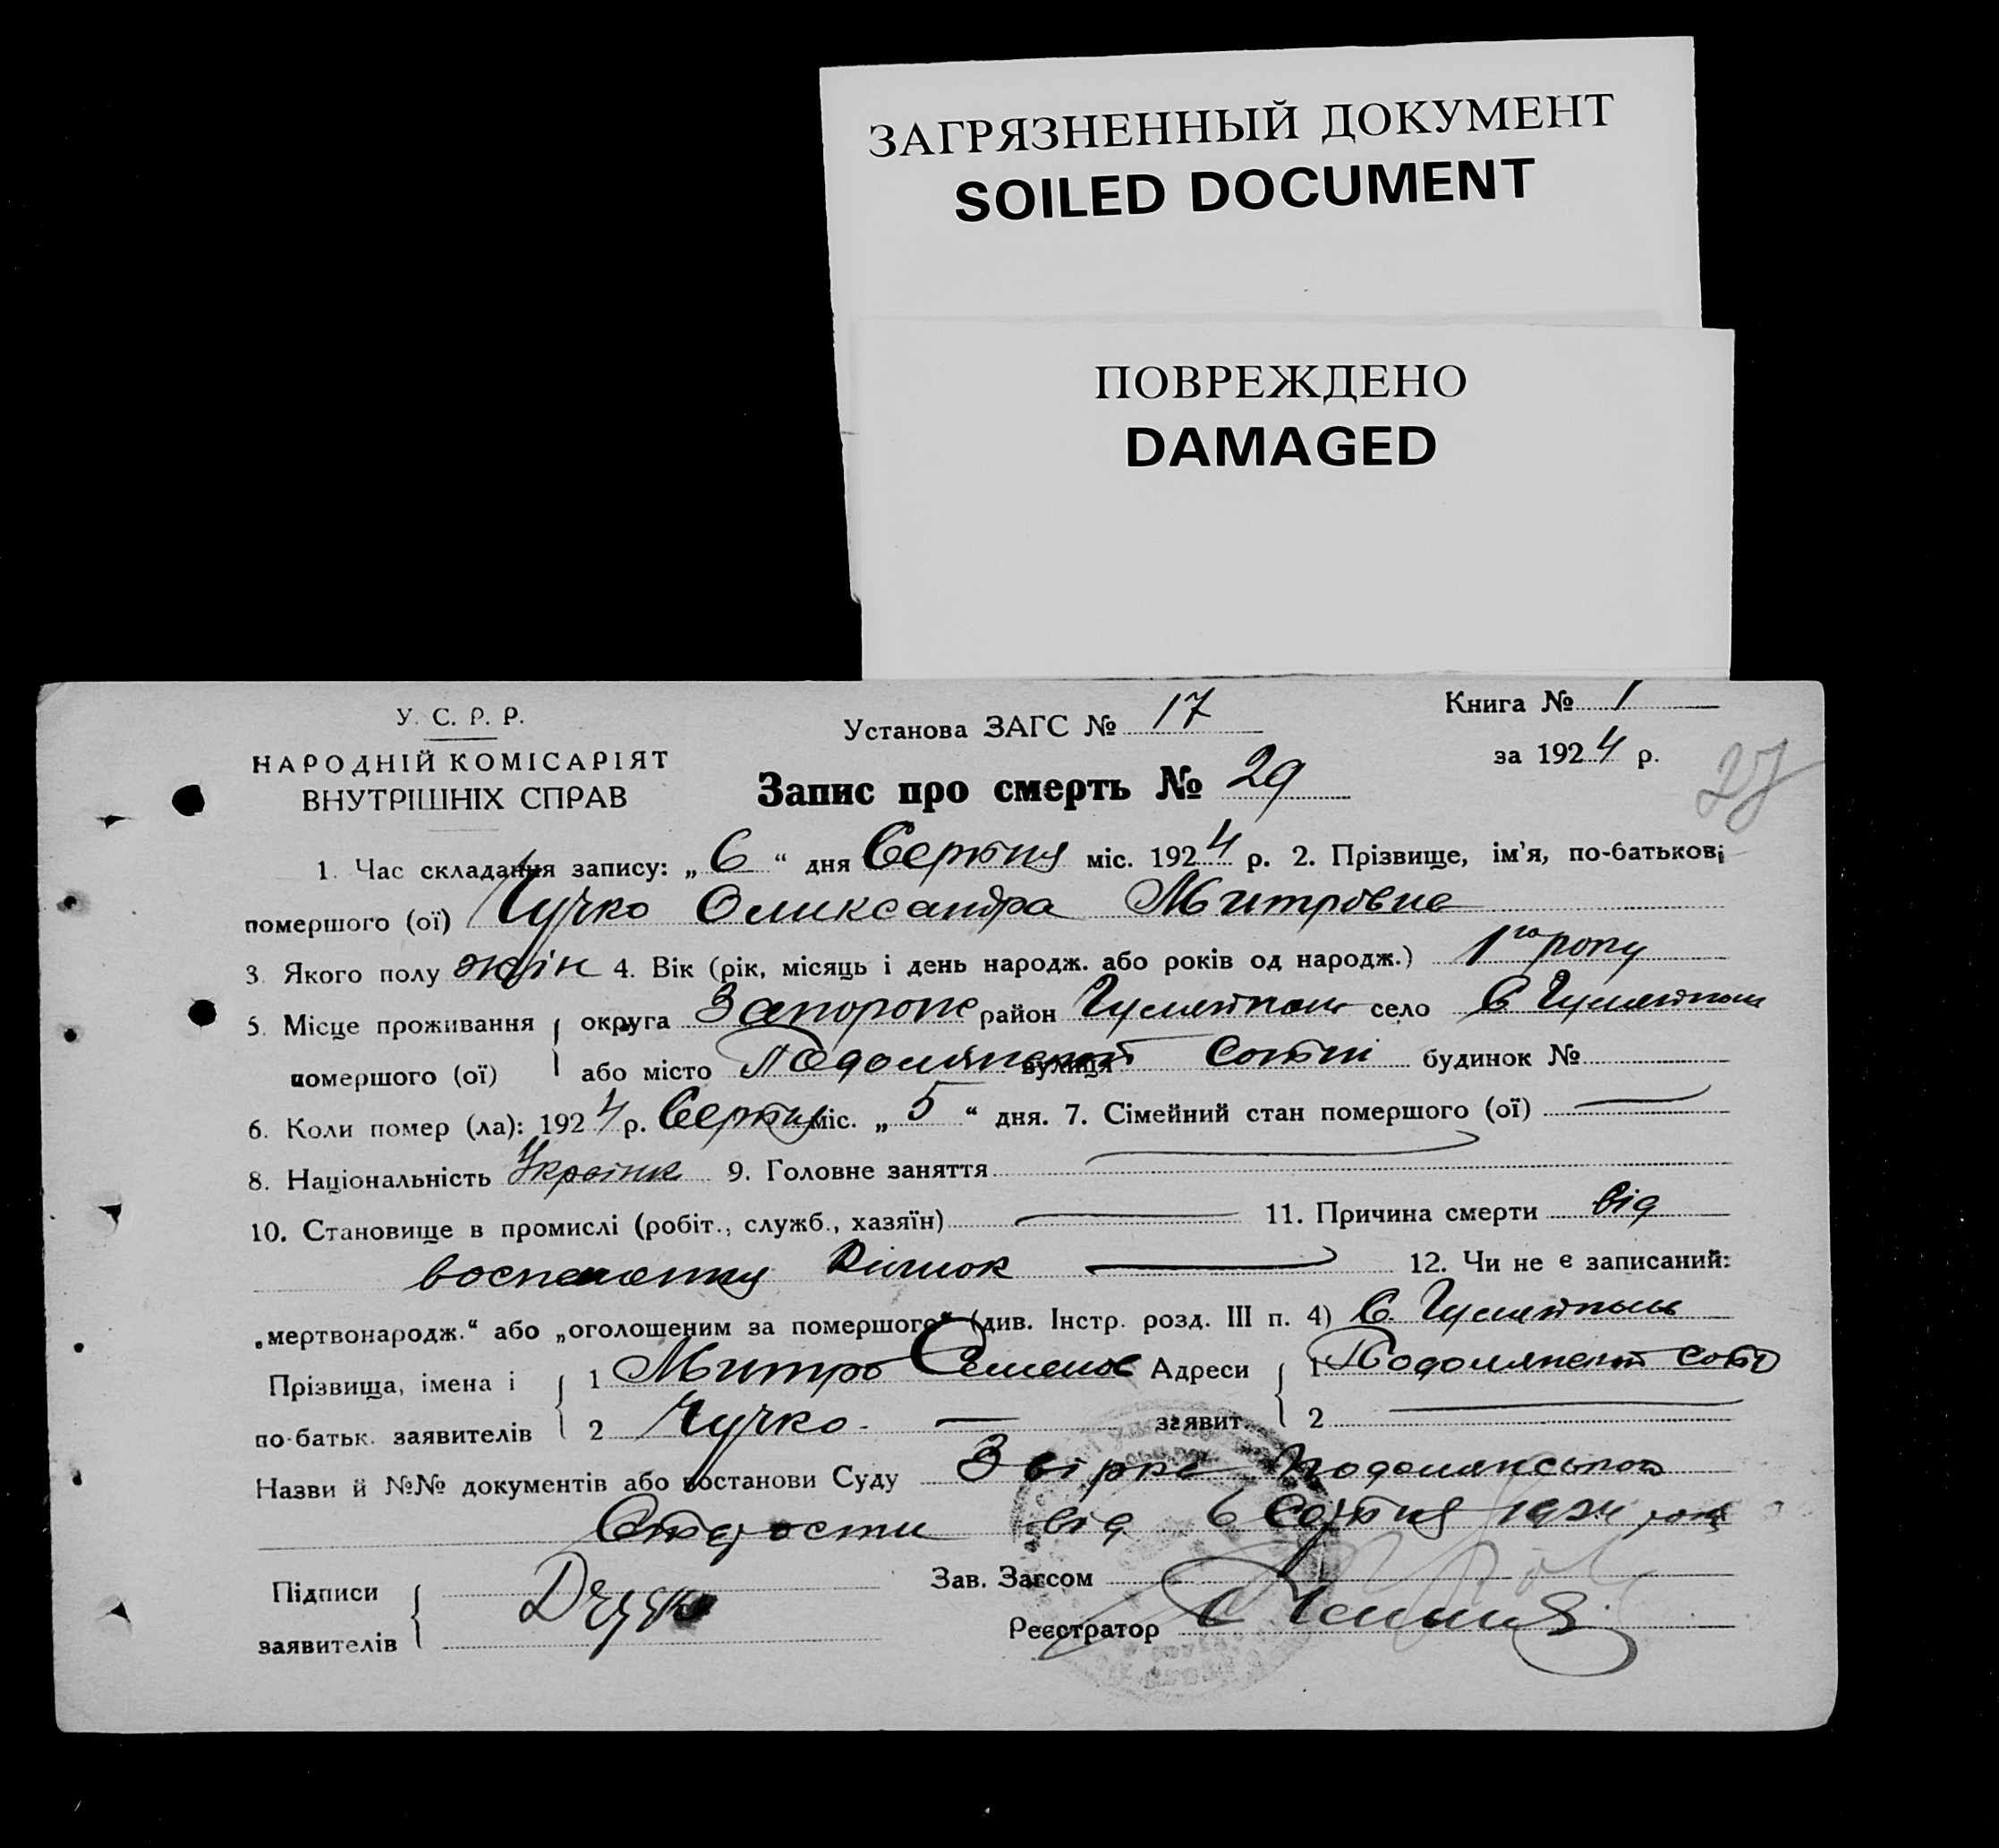 ЗАГРЯЗНЕННЫЙ ДОКУМЕНТ
SOILED DOCUMENT
ПОВРЕЖДЕНО
DAMAGED
У. С. Р. Р.
НАРОДНІЙ КОМІСАРІЯТ
ВНУТРІШНІХ СПРАВ
Установа ЗАГС № 17
Книга № 1
за 1924 р.
27
Запис про смерть № 29
1. Час складання запису: „ 6 “ дня Серпня міс. 1924 р. 2. Прізвище, ім'я, по-батькові
помершого (ої) Чучко Олександра Митровна
3. Якого полу жін 4. Вік (рік, місяць і день народж. або років од народж.) 1го року
5. Місце проживання помершого (ої) округа Запорож район Гуляйполь село С Гуляйполь
або місто вулиця Сотні будинок №
6. Коли помер (ла): 1924 р. Серпня міс. „ 5 “ дня. 7. Сімейний стан помершого (ої) —
8. Національність 9. Головне заняття —
10. Становище в промислі (робіт., служб., хазяїн) — 11. Причина смерти від
кишок — 12. Чи не є записаний:
„мертвонародж.“ або „оголошеним за помершого“ (див. Інстр. розд. III п. 4) С. Гуляйполь
Прізвища, імена і по-батьк. заявителів 1 Митро Семенов Адреси заявит. 1
2 Чучко — 2 —
Назви й №№ документів або постанови Суду
від 6 Серпня 1924 року
Підписи заявителів
Зав. Загсом
Реєстратор